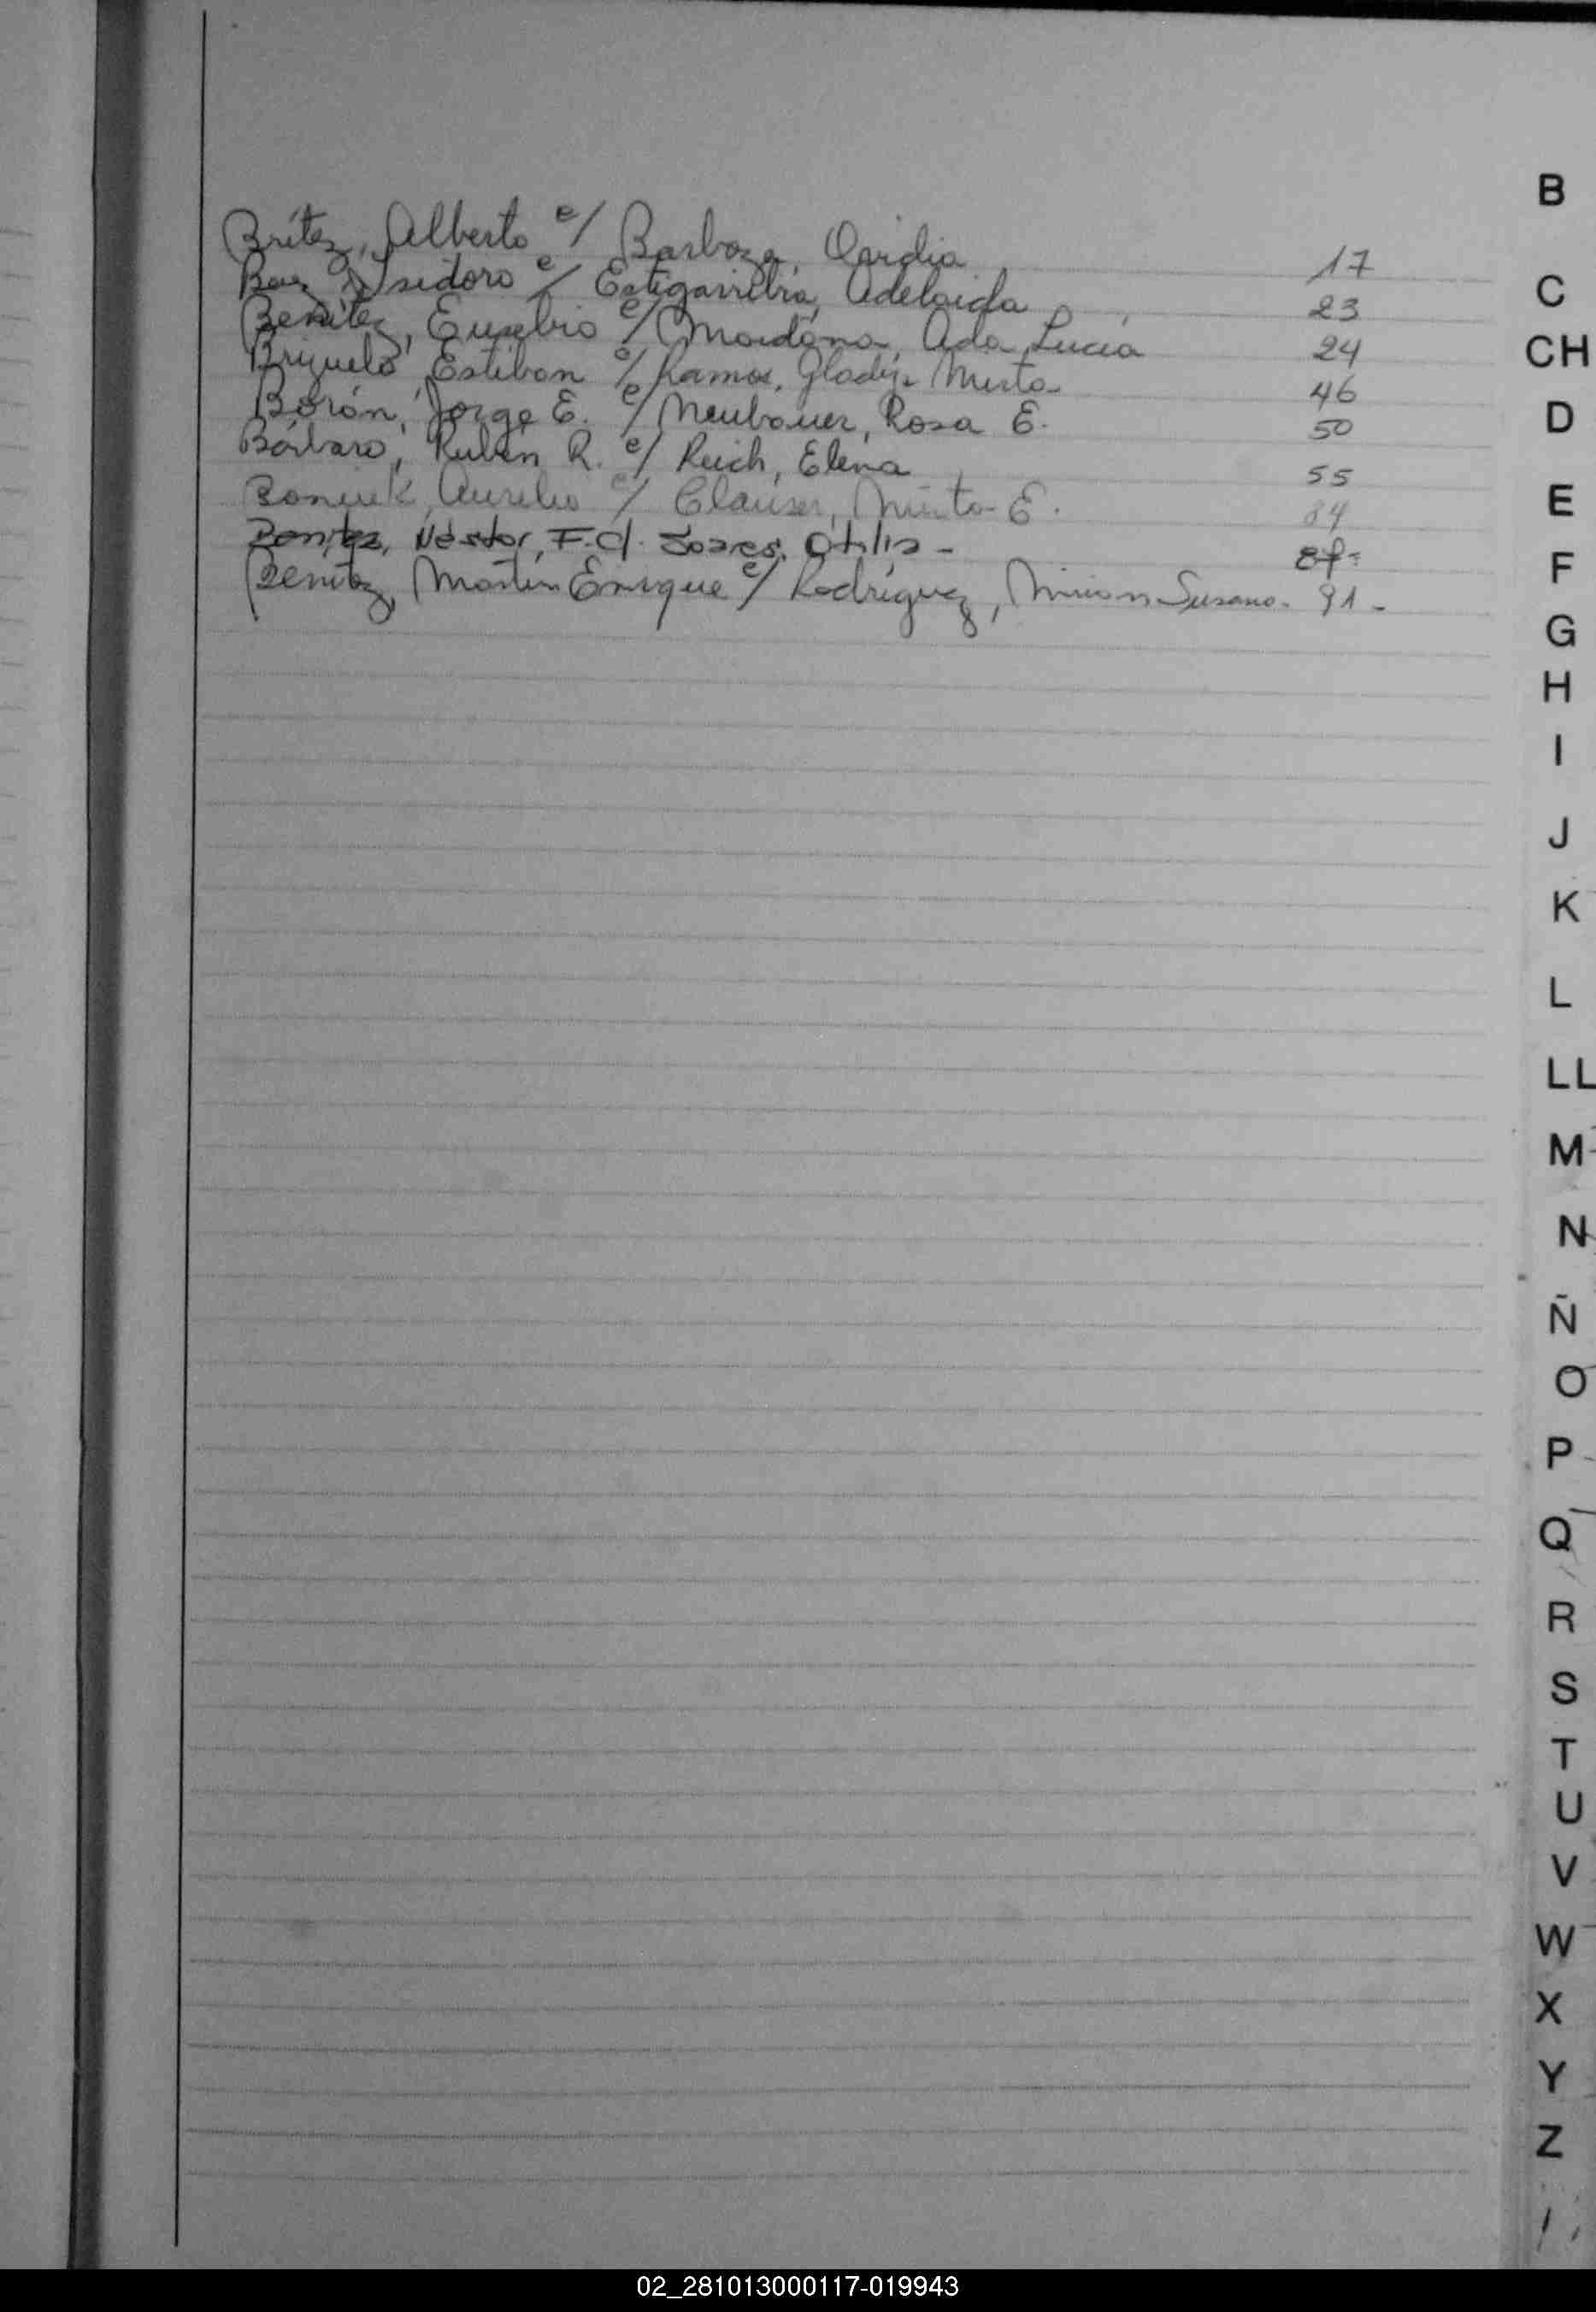 Brítez, Alberto c/ Barboza, Ovidia 17
Baez Isidoro c/ Estigarribia, Adelaida 23
Benítez, Eusebio c/ Maidana, Ada Lucía 24
Brizuela, Esteban c/ Ramos, Gladys Mirta 46
Borón, Jorge E. c/ Neubauer, Rosa E. 50
Bárbaro, Rubén R. c/ Reich, Elena 55
Aurelio c/ Clauser, Mirta E. 84
Benítez, Néstor, F. c/. Soares, Otilia -
Benítez, Martín Enrique c/ Rodríguez, Miriam Susana. 91 -
B
C
CH
D
E
F
G
H
I
J
K
L
LL
M
N
Ñ
O
P
Q
R
S
T
U
V
W
X
Y
Z
02_281013000117-019943